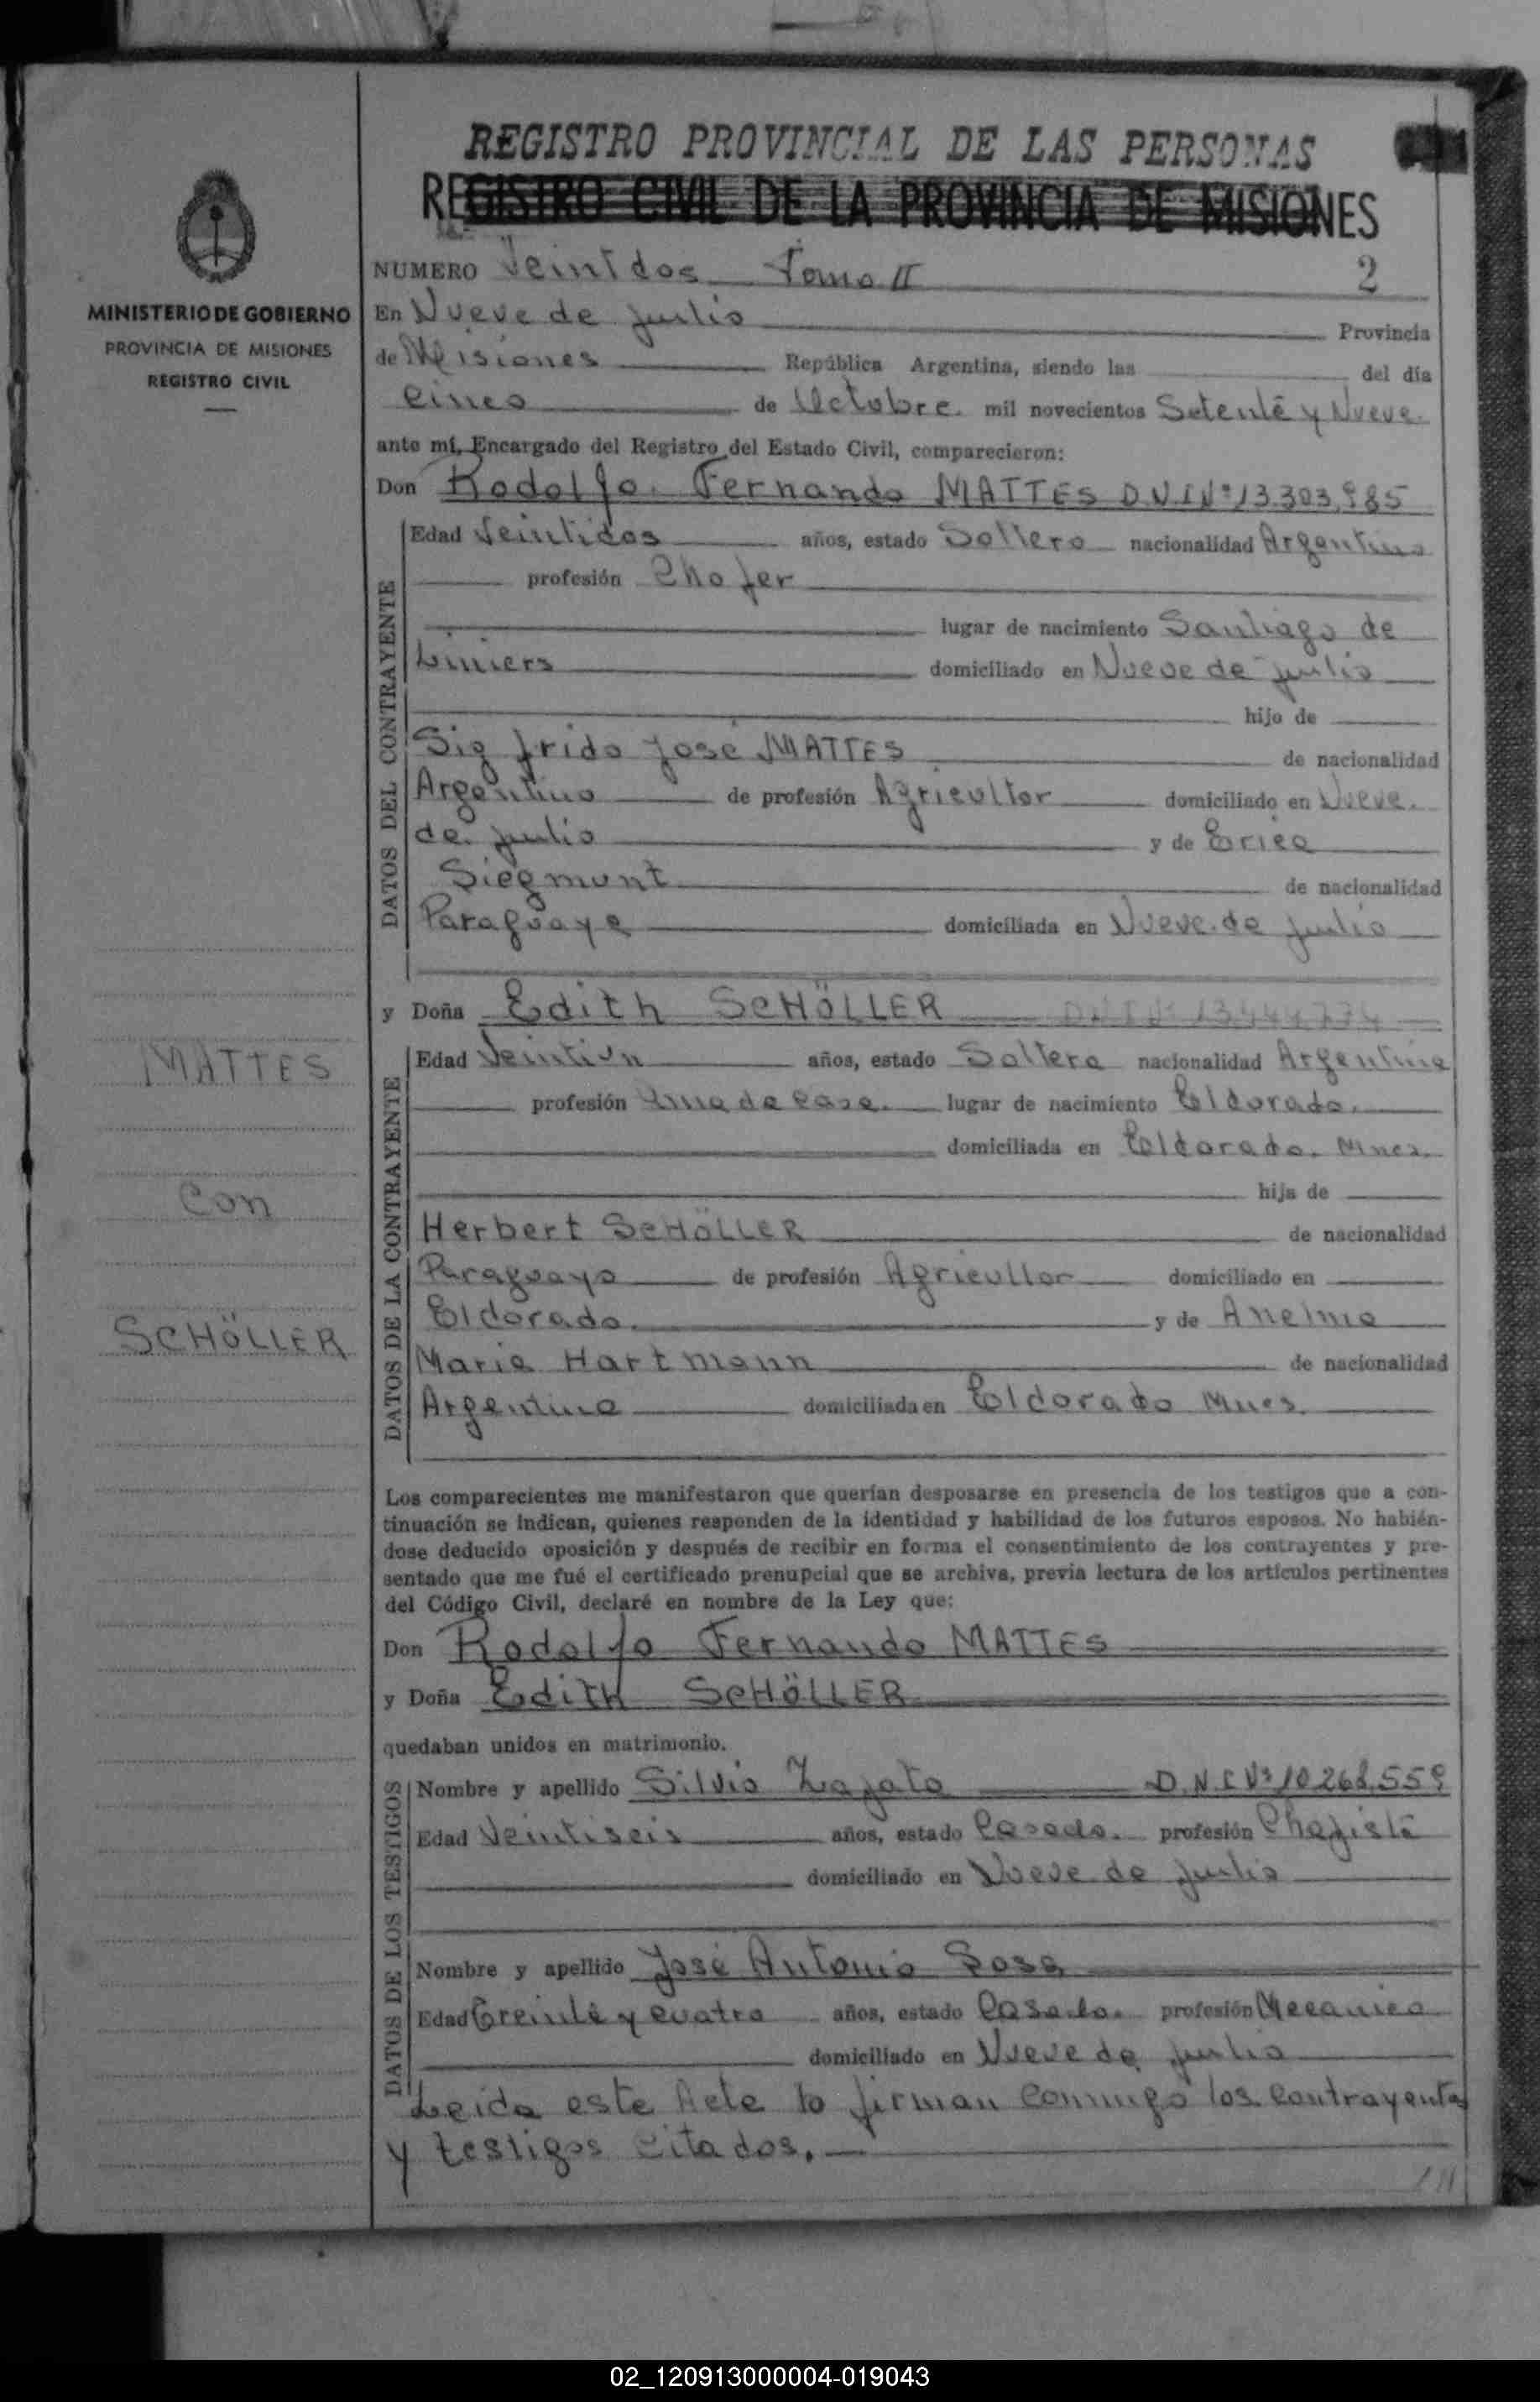 REGISTRO PROVINCIAL DE LAS PERSONAS
REGISTRO CIVIL DE LA PROVINCIA DE MISIONES
MINISTERIO DE GOBIERNO
PROVINCIA DE MISIONES
REGISTRO CIVIL
MATTES
Con
SCHÖLLER
NUMERO Veintdos Tomo II 2
En Nueve de julio Provincia
de Misiones República Argentina, siendo las del día
Cinco de Octubre. mil novecientos Setenta y Nueve.
ante mí, Encargado del Registro del Estado Civil, comparecieron:
Don Rodolfo. Fernando MATTES D.N.I Nº 13.303.985
DATOS DEL CONTRAYENTE
Edad Veintidos años, estado Soltero nacionalidad Argentino
profesión Chofer
lugar de nacimiento Santiago de
Liniers domiciliado en Nueve de julio
hijo de
Sigfrido José MATTES de nacionalidad
Argentino de profesión Agricultor domiciliado en Nueve.
de. julio y de Erica
Siegmunt de nacionalidad
Paraguaya domiciliada en Nueve. de julio
y Doña Edith SCHÖLLER DNI Nº 13444774
DATOS DE LA CONTRAYENTE
Edad Veintiun años, estado Soltera nacionalidad Argentina
profesión Ama de Casa. lugar de nacimiento Eldorado.
domiciliada en Eldorado. Mnes.
hija de
Herbert SCHÖLLER de nacionalidad
Paraguayo de profesión Agricultor domiciliado en
Eldorado. y de Anelma
Maria Hartmann de nacionalidad
Argentina domiciliada en Eldorado Mnes.
Los comparecientes me manifestaron que querían desposarse en presencia de los testigos que a con-
tinuación se indican, quienes responden de la identidad y habilidad de los futuros esposos. No habién-
dose deducido oposición y después de recibir en forma el consentimiento de los contrayentes y pre-
sentado que me fué el certificado prenupcial que se archiva, previa lectura de los artículos pertinentes
del Código Civil, declaré en nombre de la Ley que:
Don Rodolfo Fernando MATTES
y Doña Edith SCHÖLLER
quedaban unidos en matrimonio.
DATOS DE LOS TESTIGOS
Nombre y apellido Silvio Zapata D.N.I Nº 10.268.559
Edad Veintiseis años, estado Casado. profesión Chapista
domiciliado en Nueve de julio
Nombre y apellido José Antonio Sosa
Edad Treinta y cuatro años, estado Casado. profesión Mecanico
domiciliado en Nueve de julio
Leida este Acta lo firman conmigo los contrayentes
y testigos citados.
02_120913000004-019043